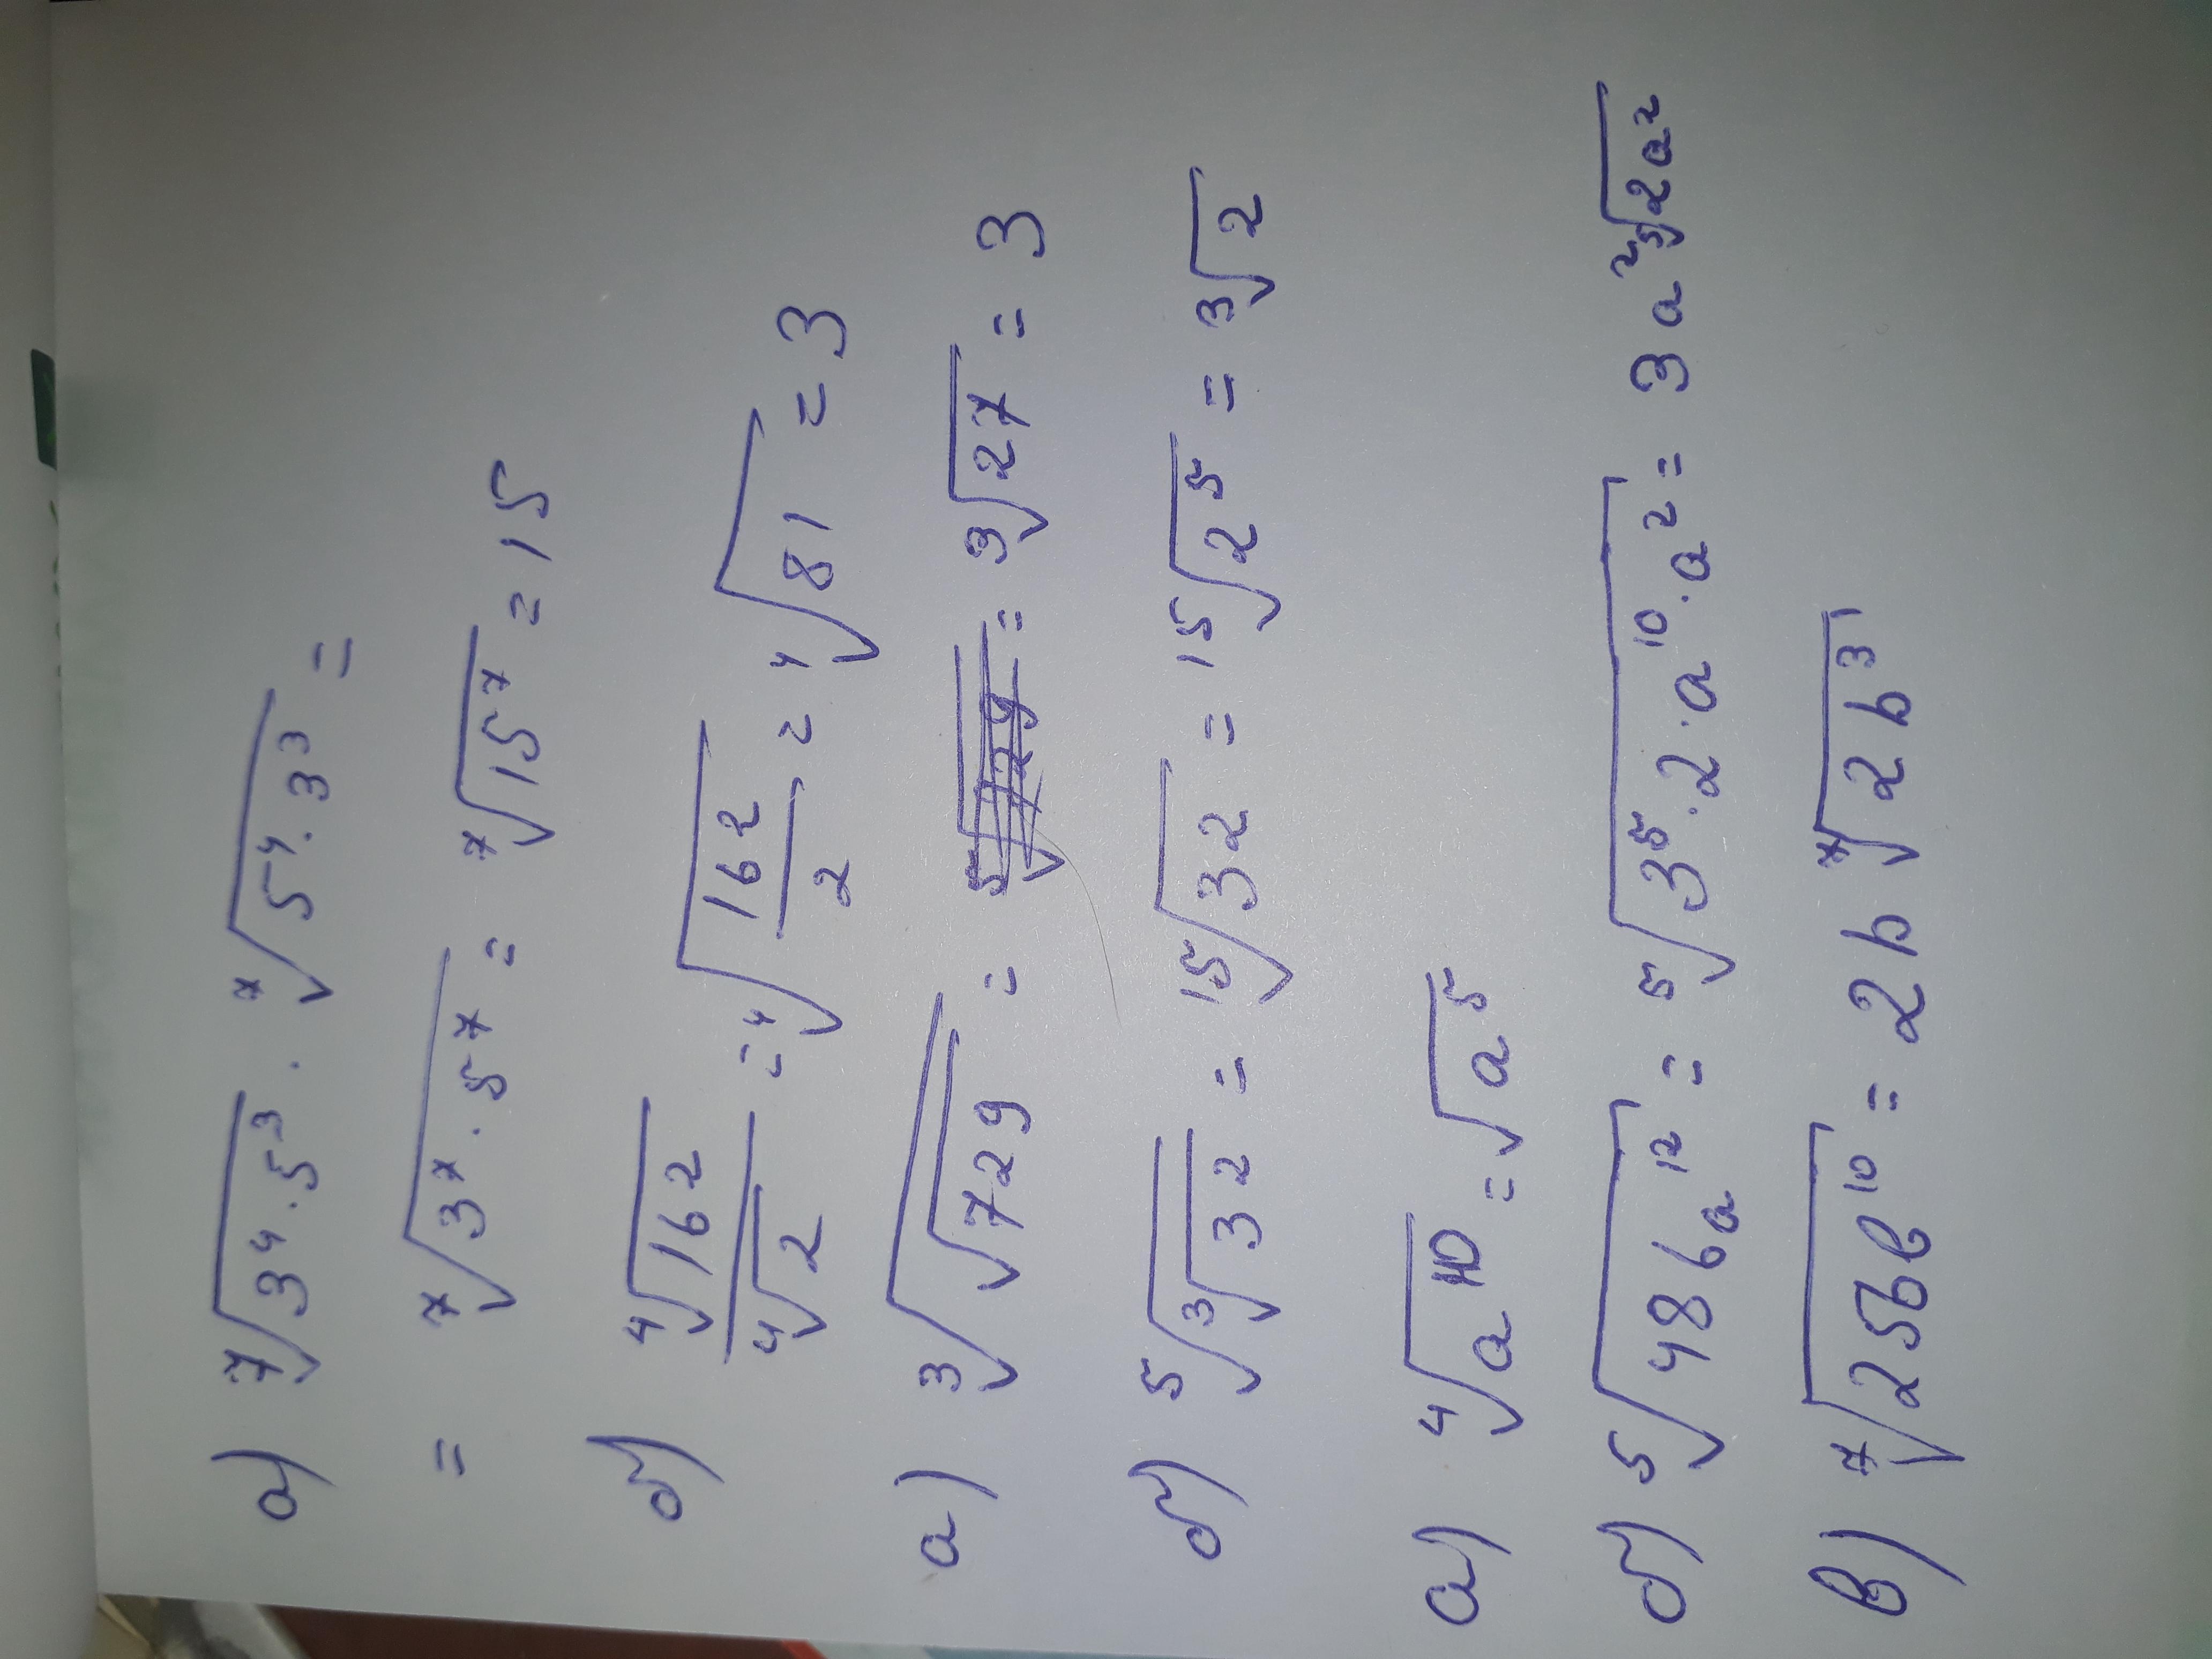 а) ⁷√(3⁴·5³) · ⁷√(5⁴·3³) =
= ⁷√(3⁷·5⁷) = ⁷√(15⁷) = 15
б) ⁴√162 / ⁴√2 = ⁴√(162/2) = ⁴√81 = 3
а) ³√(√729) = = ³√27 = 3
б) ⁵√(³√32) = ¹⁵√32 = ¹⁵√(2⁵) = ³√2
а) ⁴√(a¹⁰) = √(a⁵)
б) ⁵√(486a¹²) = ⁵√(3⁵·2·a¹⁰·a²) = 3a² ⁵√(2a²)
в) ⁷√(256в¹⁰) = 2b ⁷√(2b³)